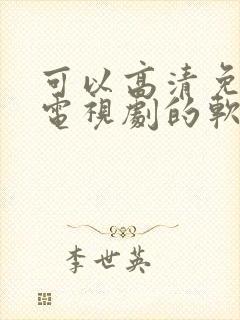 可以高清免
電視劇的軟
李世英